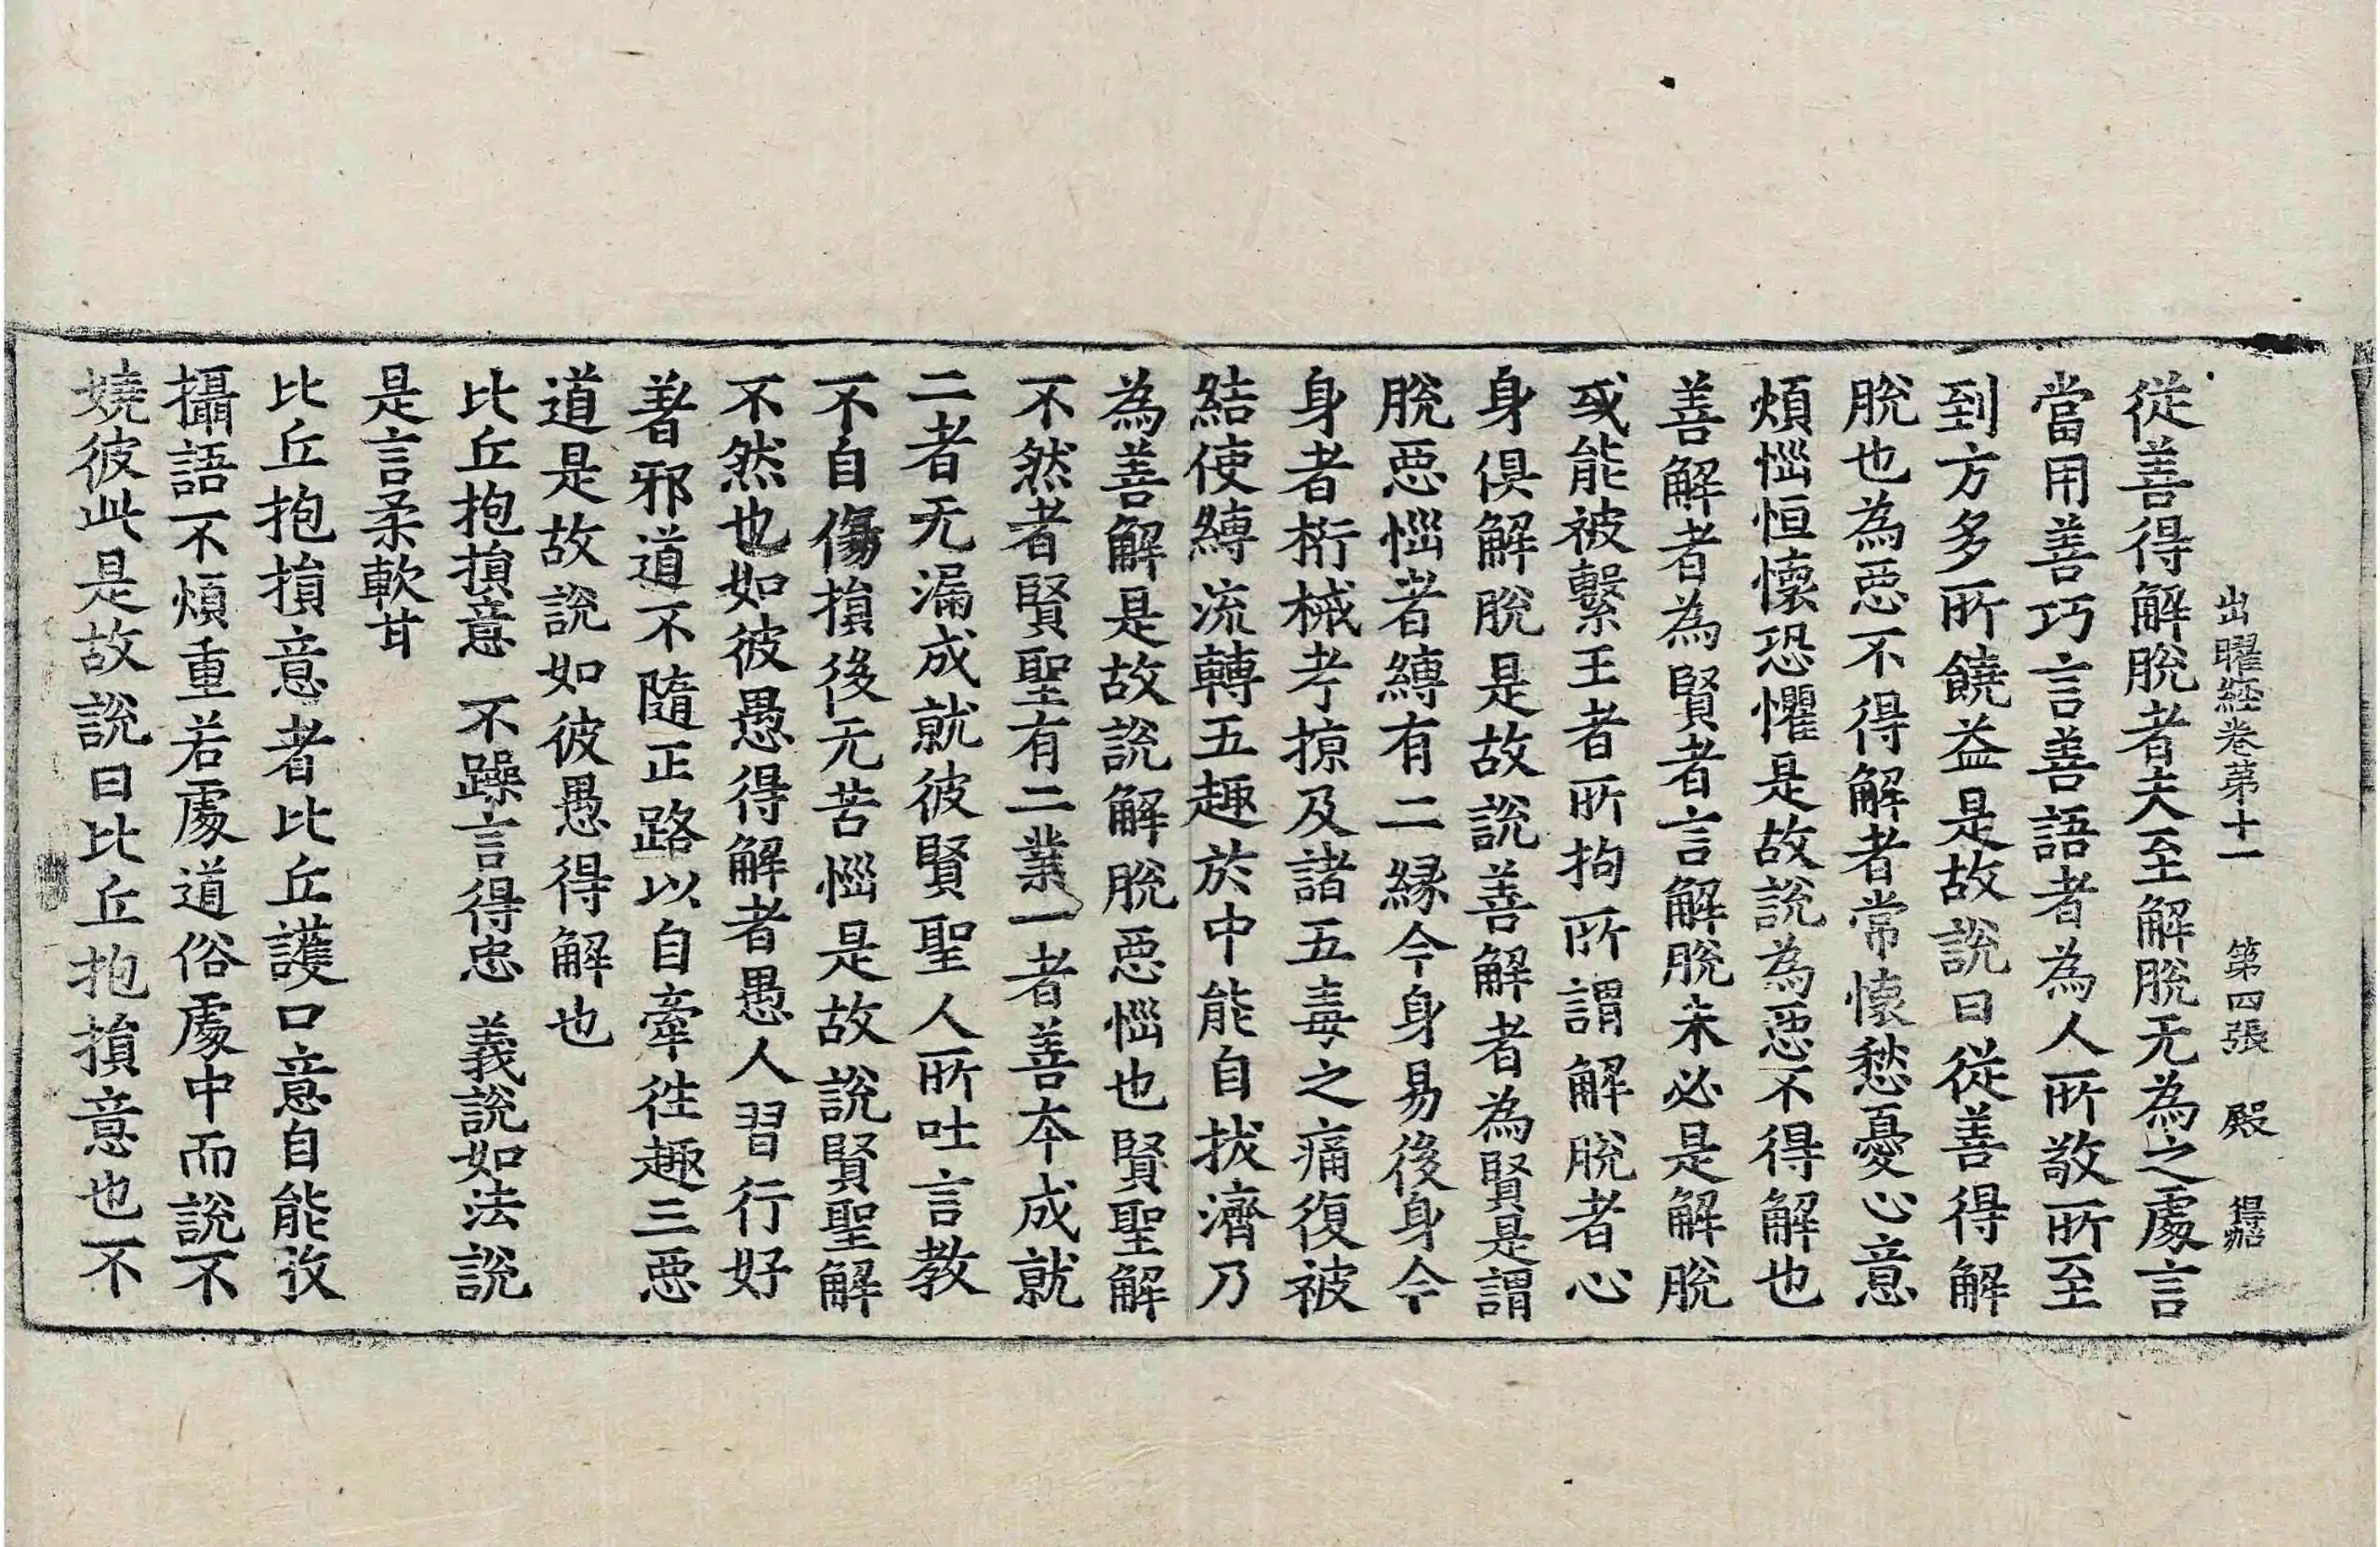 出曜經卷第十一 第四張 殿
從善得解脫者夫至解脫无為之處言
當用善巧言善語者為人所敬所至
到方多所饒益是故說曰從善得解
脫也為惡不得解者常懷愁憂心意
煩惱恒懷恐懼是故說為惡不得解也
善解者為賢者言解脫未必是解脫
或能被繫王者所拘所謂解脫者心
身俱解脫是故說善解者為賢是謂
脫惡惱者縛有二緣今身易後身今
身者桁械考掠及諸五毒之痛復被
結使縛流轉五趣於中能自拔濟乃
為善解是故說解脫惡惱也賢聖解
不然者賢聖有二業一者善本成就
二者无漏成就彼賢聖人所吐言教
不自傷損後无苦惱是故說賢聖解
不然也如彼愚得解者愚人習行好
著邪道不隨正路以自牽往趣三惡
道是故說如彼愚得解也
比丘抱損意 不躁言得忠 義說如法說
是言柔軟甘
比丘抱損意者比丘護口意自能攷
攝語不煩重若處道俗處中而說不
嬈彼此是故說曰比丘抱損意也不